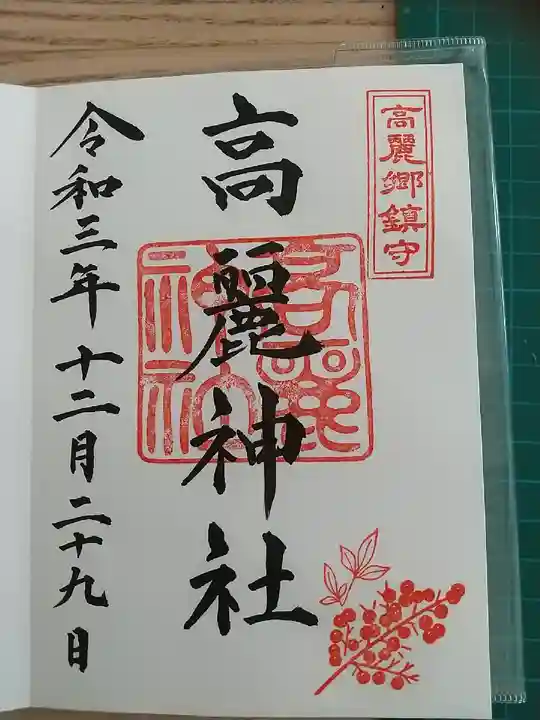 高麗郷鎮守
高麗神社
高麗神社
令和三年十二月二十九日